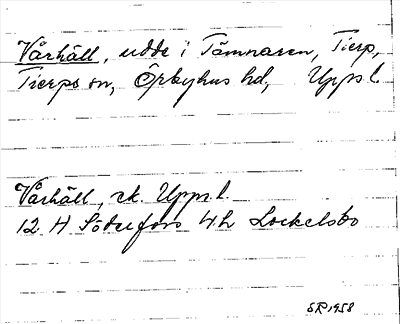 Vårhäll, udde i Tämnaren, Tierp,
Tierps sn, Örbyhus hd, Upps. l.
Vårhäll, ek. Upps. l.
12 H Söderfors 4h Lockelsbo
SR 1958